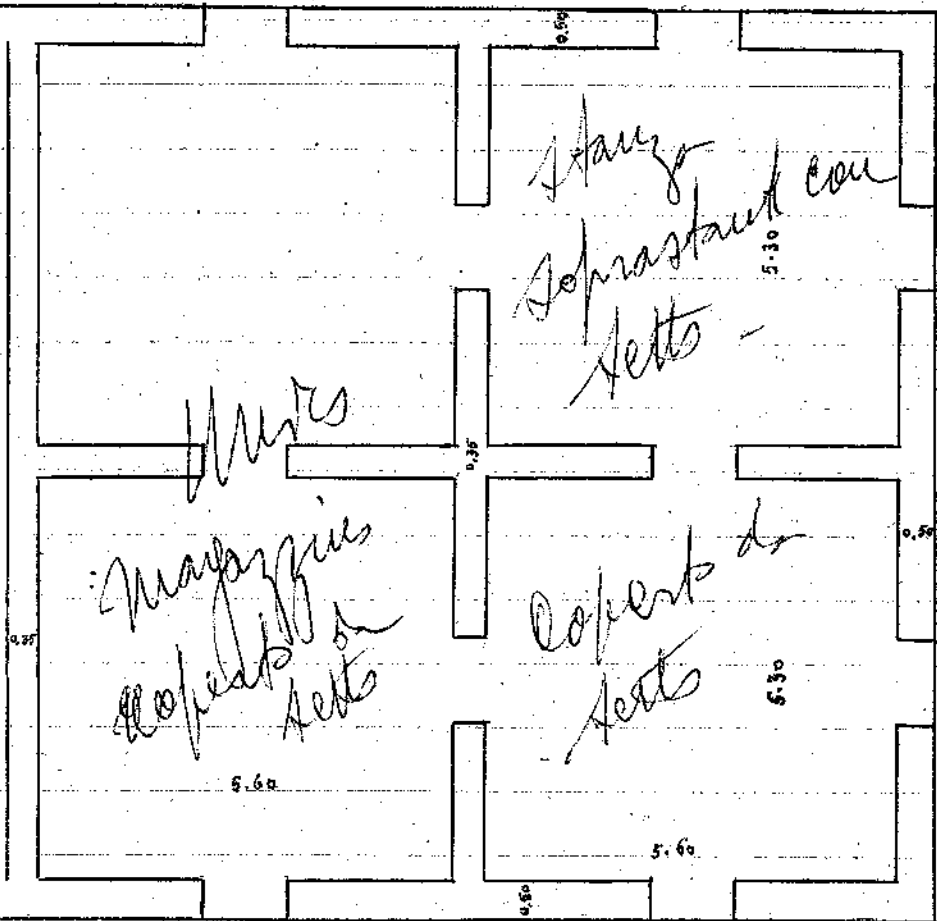 0,50
stanza
soprastante con
tetto -
5.30
0,35
magazzino
coperto da
tetto
coperto da
tetto
0,50
0,35
5.30
5.60
5.60
0,50